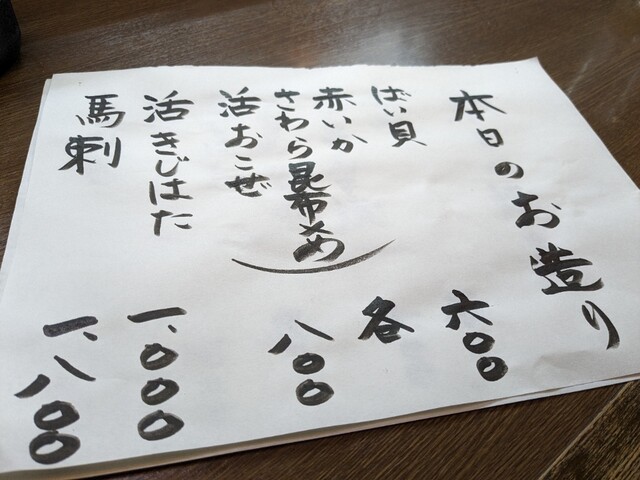 本日のお造り
ばい貝 六〇〇
赤いか
さわら昆布〆め
活おこぜ
各 八〇〇
活きじはた 一、〇〇〇
馬刺 一、八〇〇